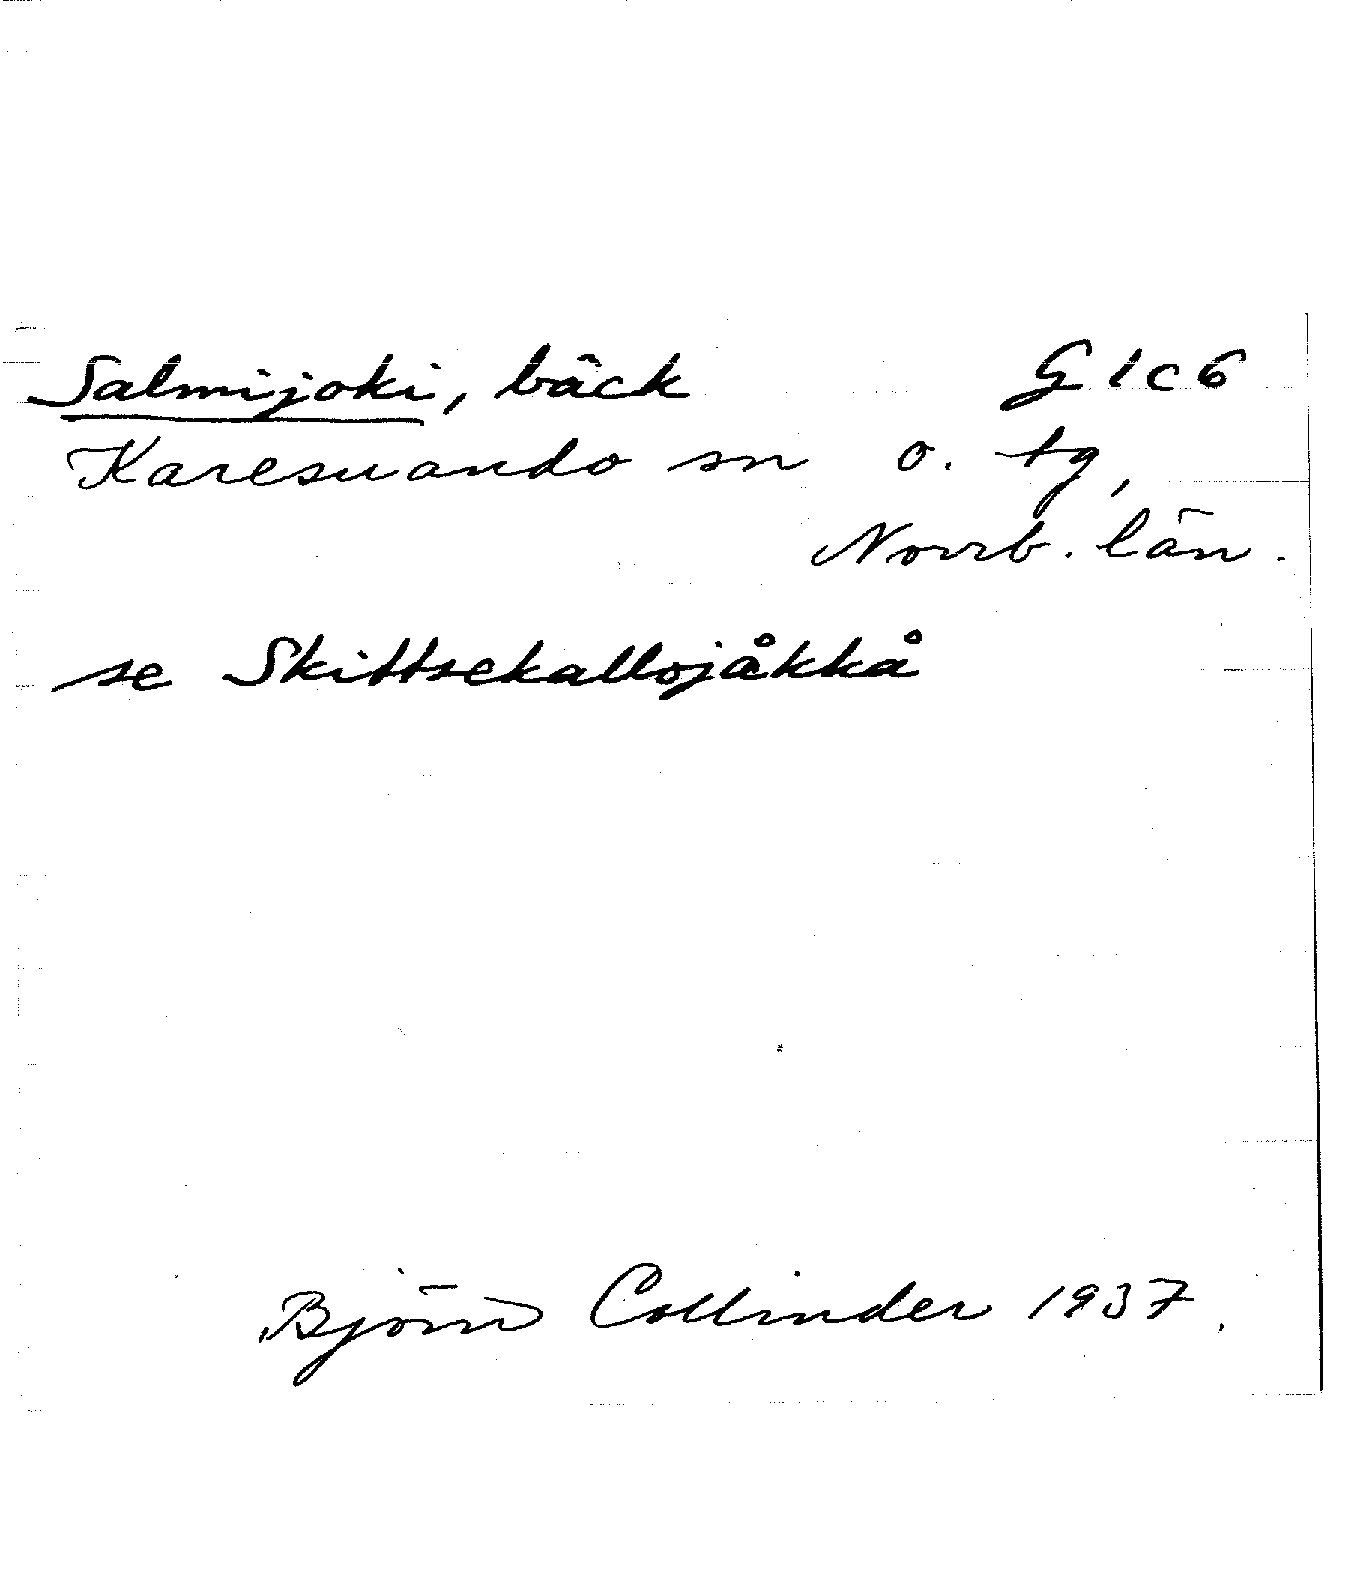 Salmijoki, bäck G 1 c 6
Karesuando sn o. tg,
Norrb. län.
se Skittsekallojåkkå
Björn Collinder 1937.